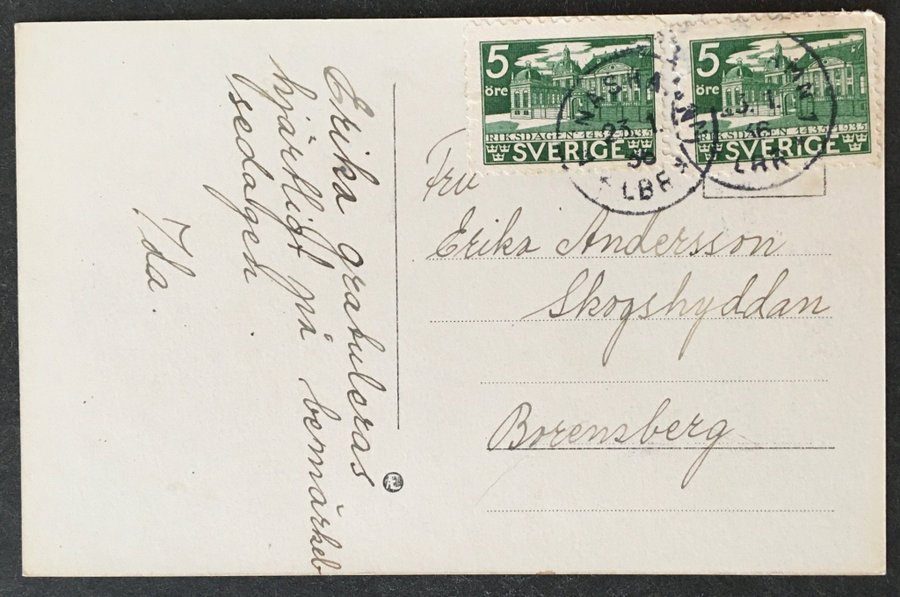 Erika gratuleras
hjärtligt på bemärkel
sedagen
Ida.
5
öre
RIKSDAGEN 1435 1935
SVERIGE
5
öre
RIKSDAGEN 1435 1935
SVERIGE
23.1.
36
23.1.
36
Fru
Erika Andersson
Skogshyddan
Borensberg